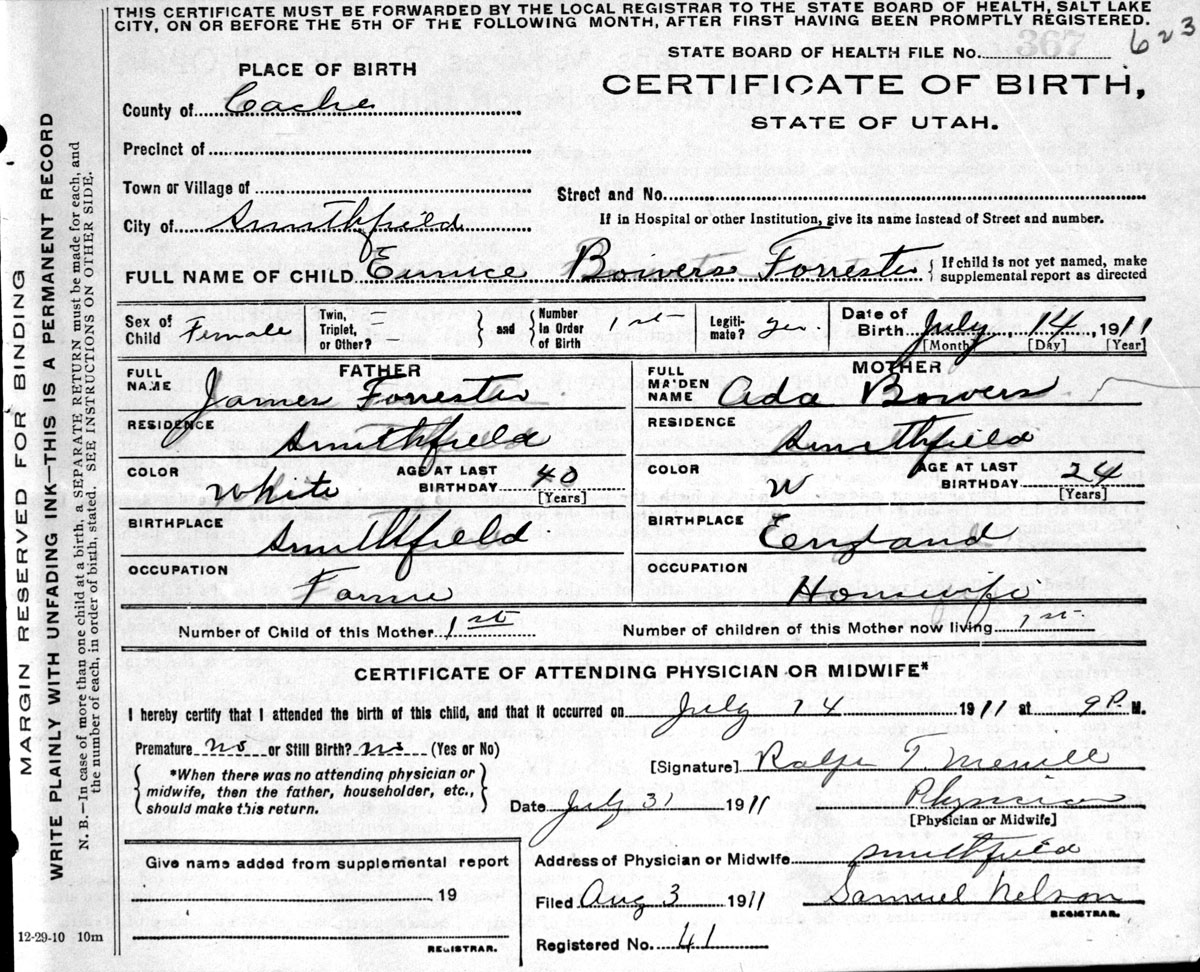 THIS CERTIFICATE MUST BE FORWARDED BY THE LOCAL REGISTRAR TO THE STATE BOARD OF HEALTH, SALT LAKE
CITY, ON OR BEFORE THE 5TH OF THE FOLLOWING MONTH, AFTER FIRST HAVING BEEN PROMPTLY REGISTERED.
623
STATE BOARD OF HEALTH FILE No. 367
CERTIFICATE OF BIRTH,
STATE OF UTAH.
PLACE OF BIRTH
County of Cache
Precinct of
Town or Village of
Street and No.
City of Smithfield
If in Hospital or other Institution, give its name instead of Street and number.
FULL NAME OF CHILD Eunice Bowers Forrester { If child is not yet named, make
supplemental report as directed
Sex of Child Female
Twin, Triplet, or Other? —
and Number In Order of Birth 1st
Legitimate? yes.
Date of Birth July 14, 1911
[Month] [Day] [Year]
FATHER
FULL NAME James Forrester
RESIDENCE Smithfield
COLOR White AGE AT LAST BIRTHDAY 40
[Years]
BIRTHPLACE Smithfield
OCCUPATION Farmer
MOTHER
FULL MAIDEN NAME Ada Bowers
RESIDENCE Smithfield
COLOR W AGE AT LAST BIRTHDAY 24
[Years]
BIRTHPLACE England
OCCUPATION Housewife
Number of Child of this Mother 1st Number of children of this Mother now living 1st.
CERTIFICATE OF ATTENDING PHYSICIAN OR MIDWIFE*
I hereby certify that I attended the birth of this child, and that it occurred on July 14 1911 at 9 P. M.
Premature no or Still Birth? no (Yes or No)
*When there was no attending physician or
midwife, then the father, householder, etc.,
should make this return.
[Signature] Ralph T. Merrill
Date July 31 1911 Physician
[Physician or Midwife]
Give name added from supplemental report
19
REGISTRAR.
Address of Physician or Midwife Smithfield
Filed Aug 3 1911 Samuel Nelson
REGISTRAR.
Registered No. 41
12-29-10 10m
MARGIN RESERVED FOR BINDING
WRITE PLAINLY WITH UNFADING INK—THIS IS A PERMANENT RECORD
N. B.—In case of more than one child at a birth, a SEPARATE RETURN must be made for each, and
the number of each, in order of birth, stated. SEE INSTRUCTIONS ON OTHER SIDE.